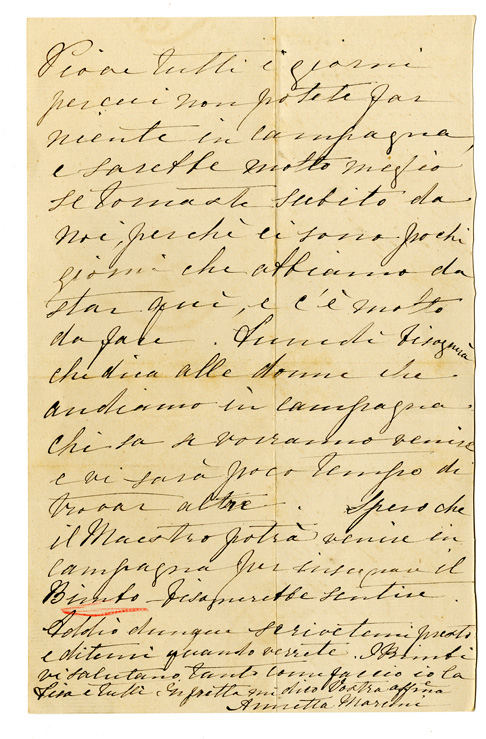 Piove tutti i giorni
per cui non potete far
niente in campagna,
e sarebbe molto meglio
se tornaste subito da
noi, perchè ci sono pochi
giorni che abbiamo da
star quì, e c'è molto
da fare. Lunedì bisognerà
che dica alle donne che
andiamo in campagna
chi sa se vorranno venire
e vi sarà poco tempo di
trovar altre. Spero che
il Maestro potrà venire in
campagna per insegnare il
Bimbo - bisognerebbe sentire.
Addio dunque scrivetemi presto
e ditemi quando verrete. I Bimbi
vi salutano, tanto come faccio io la
Lisa e tutti. In fretta mi dico Vostra affma
Annetta